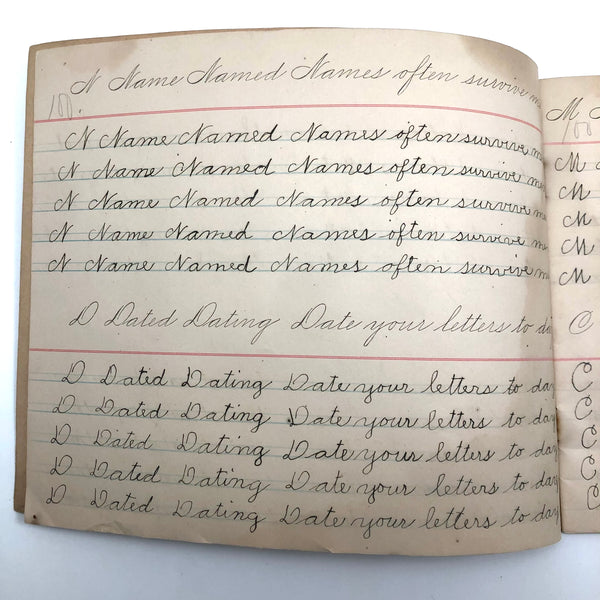 N Name Named Names often survive
100
N Name Named Names often survive
N Name Named Names often survive
N Name Named Names often survive
N Name Named Names often survive
N Name Named Names often survive
D Dated Dating Date your letters to
D Dated Dating Date your letters to day
D Dated Dating Date your letters to day
D Dated Dating Date your letters to day
D Dated Dating Date your letters to day
D Dated Dating Date your letters to day
M
100
M
M
M
M
M
C
C
C
C
C
C